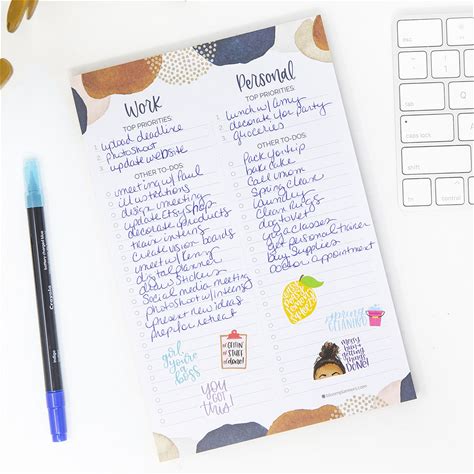 Work
TOP PRIORITIES:
1. upload deadline
2. photoshoot
3. update website
OTHER TO-DOS:
meeting w/ Paul
illustrations
design meeting
update Etsy shop
decorate products
train intern
create vision boards
meet w/
digital planner
draw stickers
Social media meeting
photoshoot w/ intern
present new ideas
Prep for retreat
girl
you're
a
boss
YOU
GOT
THIS!
#GETTIN'
STUFF
DONE
Personal
TOP PRIORITIES:
1. lunch w/ Amy
2. decorate for party
3. groceries
OTHER TO-DOS:
Pack for trip
bake cake
Call mom
Spring clean
laundry
Clean rugs
dog to vet
yoga classes
get Personal trainer
Buy Supplies
Doctor appointment
spring
CLEANING
messy
bun &
getting
things
DONE!
bloomplanners.com
Crayola
caps lock
shift